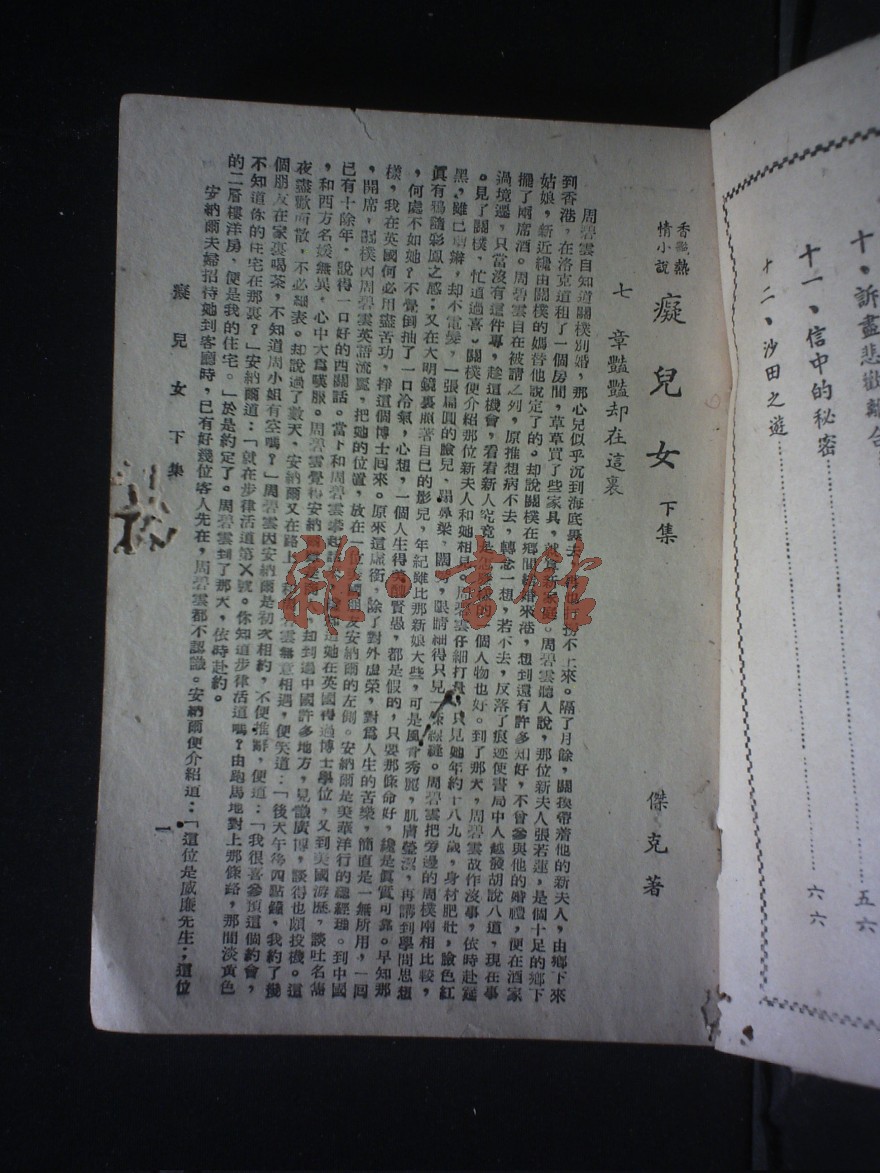 香艷熱
情小說
癡兒女 下集
傑克著
七 章豔豔却在這裏
周碧雲自知道關樸別婚，那心兒似乎沉到海底裏去，再也打撈不上來。隔了月餘，關樸帶着他的新夫人，由鄉下來
到香港，在洛克道租了一個房間，草草買了些家具，就算新家庭。周碧雲聽人說，那位新夫人張若蓮，是個十足的鄉下
姑娘，新近纔由關樸的媽替他說定了的。却說關樸在鄉間結婚來港，想到還有許多知好，不曾參與他的婚禮，便在酒家
擺了兩席酒。周碧雲自在被請之列，原推想病不去，轉念一想，若不去，反落了痕迹便書局中人越發胡說八道，現在事
過境遷，只當沒有這件專，趁這機會，看看新人究竟是怎麼樣的一個人物也好。到了那天，周碧雲故作沒事，依時赴筵
。見了關樸，忙道過喜。關樸便介紹那位新夫人和她相見。周碧雲仔細打量，只見她年約十八九歲，身材肥壯，臉色紅
黑，雖已剪辮，却不電髮，一張扁圓的臉兒，塌鼻梁，闊牙，眼睛細得只見一條線縫。周碧雲把旁邊的周樸兩相比較，
眞有鴉隨彩鳳之感：又在大明鏡裏照著自己的影兒，年紀雖比那新娘大些，可是風骨秀麗，肌膚瑩潔，再講到學問思想
，何處不如她？不覺倒抽了一口冷氣，心想，一個人生得美醜賢愚，都是假的，只要那條命好，纔是眞實可靠。早知那
樣，我在英國何必用盡苦功，掙這個博士囘來。原來這虛銜，除了對外虛榮，對爲人生的苦樂，簡直是一無所用，一囘
，開席，關樸因周碧雲英語流麗，把她的位置，放在一位英國朋友安納爾的左側。安納爾是美華洋行的總經理。到中國
已有十餘年，說得一口好的西關話。當下和周碧雲攀起話，知道她在英國得過博士學位，又到美國游歷，談吐名雋
，和西方名媛無異，心中大爲嘆服。周碧雲覺得安納爾，却到過中國許多地方，見識廣博，談得也頗投機。這
夜盡歡而散，不必細表。却說過了數天，安納爾又在路上和周碧雲無意相遇，便笑道：「後天午後四點鐘，我約了幾
個朋友在家裏喝茶，不知道周小姐有空嗎？」周碧雲因安納爾是初次相約，不便推辭，便道：「我很喜參預這個約會，
不知道你的住宅在那裏？」安納爾道：「就在步律活道第X號。你知道步律活道嗎？由跑馬地對上那條路，那間淡黃色
的二層樓洋房，便是我的住宅。」於是約定了。周碧雲到了那天，依時赴約。
安納爾夫婦招待她到客廳時，已有好幾位客人先在，周碧雲都不認識。安納爾便介紹道：「這位是威廉先生；這位
癡兒女下集
一
十、訴盡悲歡離合 五六
十一、信中的秘密
十二、沙田之遊 六六
雜·書館